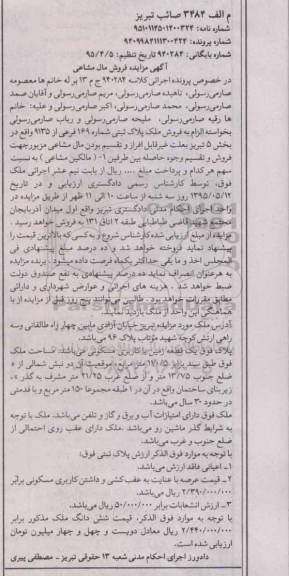 م الف ۳۴۸۴ صائب تبریز
شماره نامه: ۹۵۱۰۱۱۴۵۰۱۲۰۰۳۲۴
شماره پرونده: ۹۴۰۹۹۸۴۱۱۱۳۰۰۴۲۴
شماره بایگانی: ۹۴۰۲۸۴ تاریخ تنظیم: ۹۵/۴/۵
آگهی مزایده فروش مال مشاعی
در خصوص پرونده اجرائی کلاسه ۹۴۰۲۸۴ ج م ۱۳ برله خانم ها معصومه
صارمی‌رسولی، ناهیده صارمی‌رسولی، مریم صارمی‌رسولی و آقایان صمد
صارمی‌رسولی، محمد صارمی‌رسولی، اکبر صارمی‌رسولی و علیه: خانم
ها رقیه صارمی‌رسولی، ملیحه صارمی‌رسولی و رباب صارمی‌رسولی
بخواسته الزام به فروش ملک پلاک ثبتی شماره ۱۶۹ فرعی از ۹۱۳۵ واقع در
بخش ۵ تبریز بعلت غیرقابل افراز و تقسیم بودن مال مشاعی مزبورجهت
فروش و تقسیم وجوه حاصله بین طرفین ۱- (مالکین مشاعی) به نسبت
سهم هر کدام و پرداخت مبلغ .... ریال از بابت نیم عشر اجرائی ملک
فوق، توسط کارشناس رسمی دادگستری ارزیابی و در تاریخ
۱۳۹۵/۰۵/۱۲ روز سه شنبه از ساعت ۱۰ الی ۱۱ ظهر از طریق مزایده در
واحد اجرای احکام مدنی دادگستری تبریز واقع اول میدان آذربایجان
مجتمع شهید قاضی طباطبایی طبقه ۲ اتاق ۱۳۱ به فروش خواهد رسید.
مزایده از مبلغ ارزیابی شده کارشناس شروع و به کسی که بالاترین قیمت را
پیشنهاد نماید فروخته خواهد شد و ده درصد مبلغ پیشنهادی فی
المجلس اخذ و ما بقی حداکثر یکماه فرصت داده میشود. برنده مزایده
به هرعنوان انصراف نماید ده درصد پیشنهادی به نفع صندوق دولت
ضبط خواهد شد. هزینه های اجرائی و عوارض شهرداری و دارائی
مطابق مقررات خواهد بود. طالبین می‌توانند پنج روز قبل از مزایده از با
هماهنگی این واحد از ملک بازدید نمایند.
آدرس ملک مورد مزایده تبریز خیابان آزادی مابین چهار راه طالقانی وسه
راهی ارتش کوچه شهید مؤتاب پلاک ۹۶ می‌باشد.
پلاک فوق یک قطعه زمین با کاربری مسکونی می‌باشد. مساحت ملک
فوق طبق سند برابر ۱۷۰/۵ متر مربع، موقعیت آن دو نبش شمالی از
ضلع جنوب ۱۳/۷۵ متر و از ضلع غرب ۲۱/۲۵ متر مشرف به گذر،
زیربنای ساختمان واقع در آن در ۱ طبقه مجموعا ۱۵۰ متر مربع و با قدمتی
در حدود ۳۰ سال می‌باشد.
ملک فوق دارای امتیازات آب و برق و گاز و تلفن می‌باشد. ملک با توجه
به شرایط گذر ماشین رو می‌باشد. ملک دارای عقب روی احتمالی از
ضلع جنوب و غرب می‌باشد.
با توجه به موارد فوق الذکر ارزش پلاک ثبتی فوق:
۱- اعیانی فاقد ارزش می‌باشد.
۲- قیمت عرصه با عنایت به عقب کشی و داشتن کاربری مسکونی برابر
۲/۳۹۰/۰۰۰/۰۰۰ ریال می‌باشد.
۳- ارزش انشعابات برابر ۵۰/۰۰۰/۰۰۰ ریال می‌باشد.
با توجه به موارد فوق الذکر، قیمت شش دانگ ملک مذکور برابر
۲/۴۴۰/۰۰۰/۰۰۰ ریال معادل دویست و چهل و چهار میلیون تومان
ارزیابی شده است.
دادورز اجرای احکام مدنی شعبه ۱۳ حقوقی تبریز - مصطفی پیری